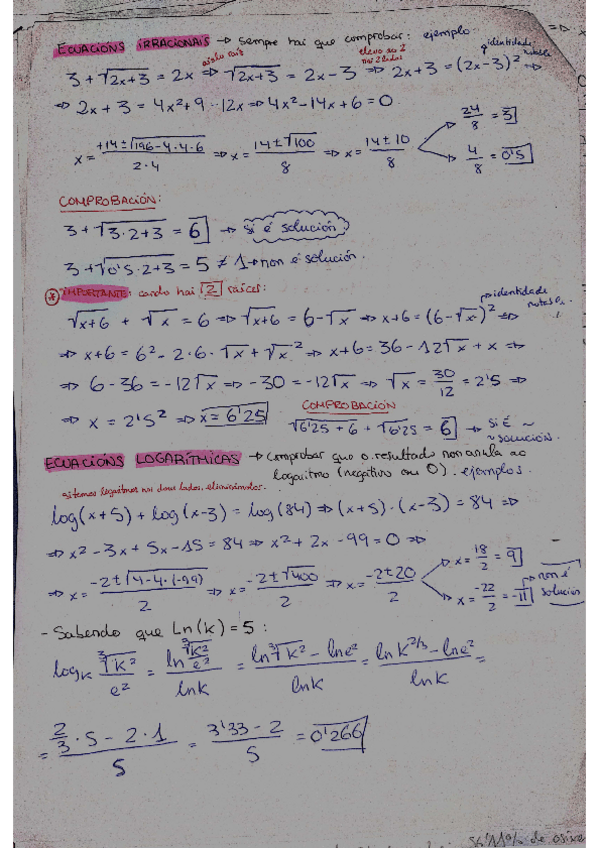 ECUACIÓNS IRRACIONAIS → sempre hai que comprobar: exemplo
aislo raíz elevo ao 2 nos 2 lados identidade notable
3 + √2x+3 = 2x ⇒ √2x+3 = 2x − 3 ⇒ 2x + 3 = (2x−3)² ⇒
⇒ 2x + 3 = 4x² + 9 − 12x ⇒ 4x² − 14x + 6 = 0
x = +14 ± √196 − 4·4·6 / 2·4 ⇒ x = 14 ± √100 / 8 ⇒ x = 14 ± 10 / 8
24/8 = 3
4/8 = 0'5
COMPROBACIÓN:
3 + √3·2+3 = 6 → si é solución
3 + √0'5·2+3 = 5 ≠ 1 → non é solución.
* IMPORTANTE, cando hai 2 raíces:
→ identidade notable.
√x+6 + √x = 6 ⇒ √x+6 = 6 − √x ⇒ x + 6 = (6 − √x)² ⇒
⇒ x + 6 = 6² − 2·6·√x + √x² ⇒ x + 6 = 36 − 12√x + x ⇒
⇒ 6 − 36 = −12√x ⇒ −30 = −12√x ⇒ √x = 30/12 = 2'5 ⇒
⇒ x = 2'5² ⇒ x = 6'25
COMPROBACIÓN
√6'25 + 6 + √6'25 = 6 → SI É ~
~ SOLUCIÓN.
ECUACIÓNS LOGARÍTMICAS → Comprobar que o resultado non anula ao
logaritmo (negativo ou 0). exemplos.
si temos logaritmos nos dous lados, eliminámolos.
log(x+5) + log(x−3) = log(84) ⇒ (x+5)·(x−3) = 84 ⇒
⇒ x² − 3x + 5x − 15 = 84 ⇒ x² + 2x − 99 = 0 ⇒
⇒ x = −2 ± √4 − 4·(−99) / 2 ⇒ x = −2 ± √400 / 2 ⇒ x = −2 ± 20 / 2
x = 18/2 = 9
x = −22/2 = −11 → non é solución
- Sabendo que Ln(k) = 5 :
log_k ∛k²/e² = ln ∛k²/e² / lnk = ln∛k² − lne² / lnk = lnk^2/3 − lne² / lnk =
= 2/3 · 5 − 2·1 / 5 = 3'33 − 2 / 5 = 0'266